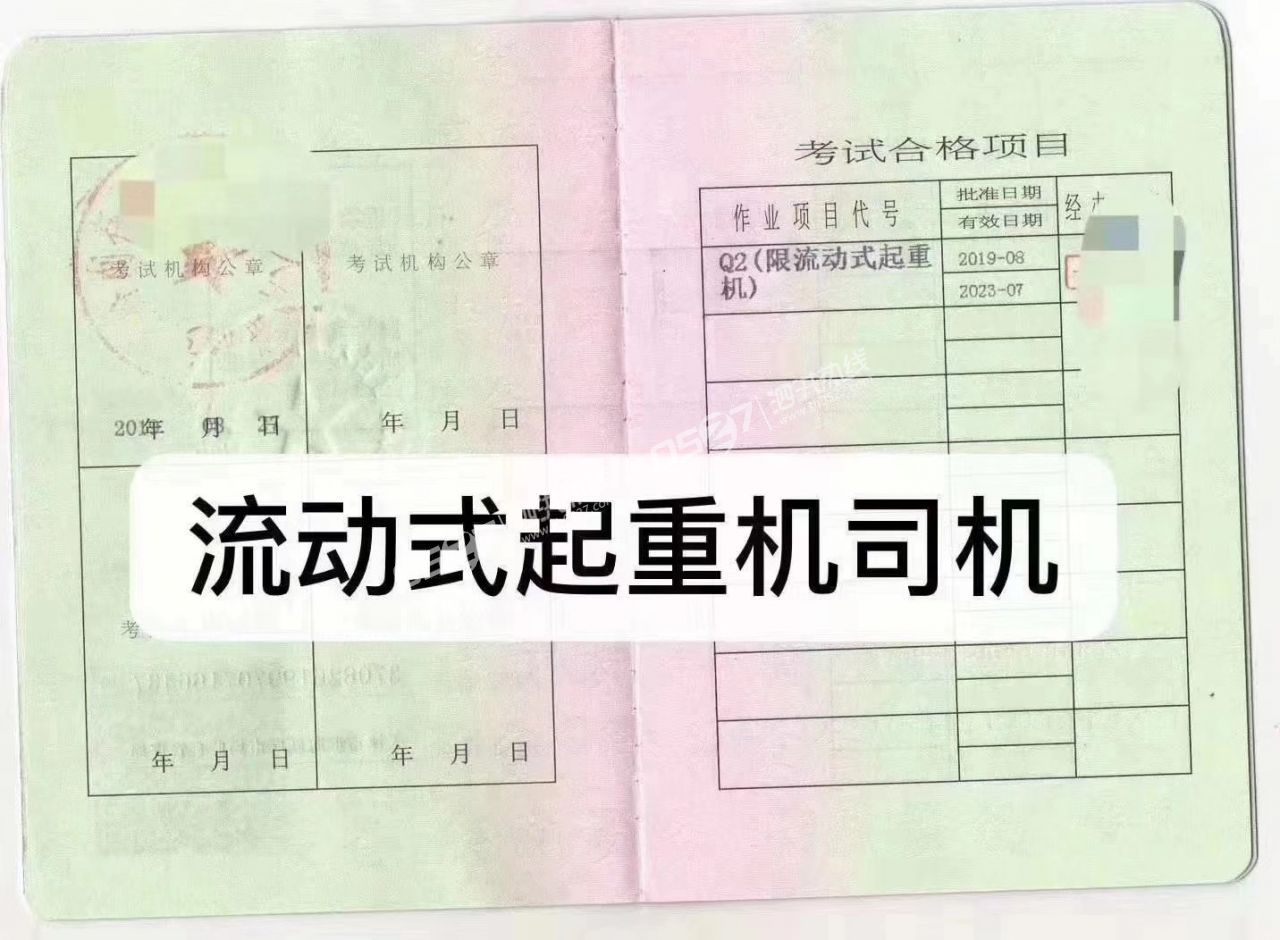 考试机构公章
考试机构公章
年 月 日
年 月 日
年 月 日
年 月 日
考试合格项目
作业项目代号
批准日期
有效日期
经
Q2(限流动式起重
机)
2019-08
2023-07
流动式起重机司机
0537|泗水热线